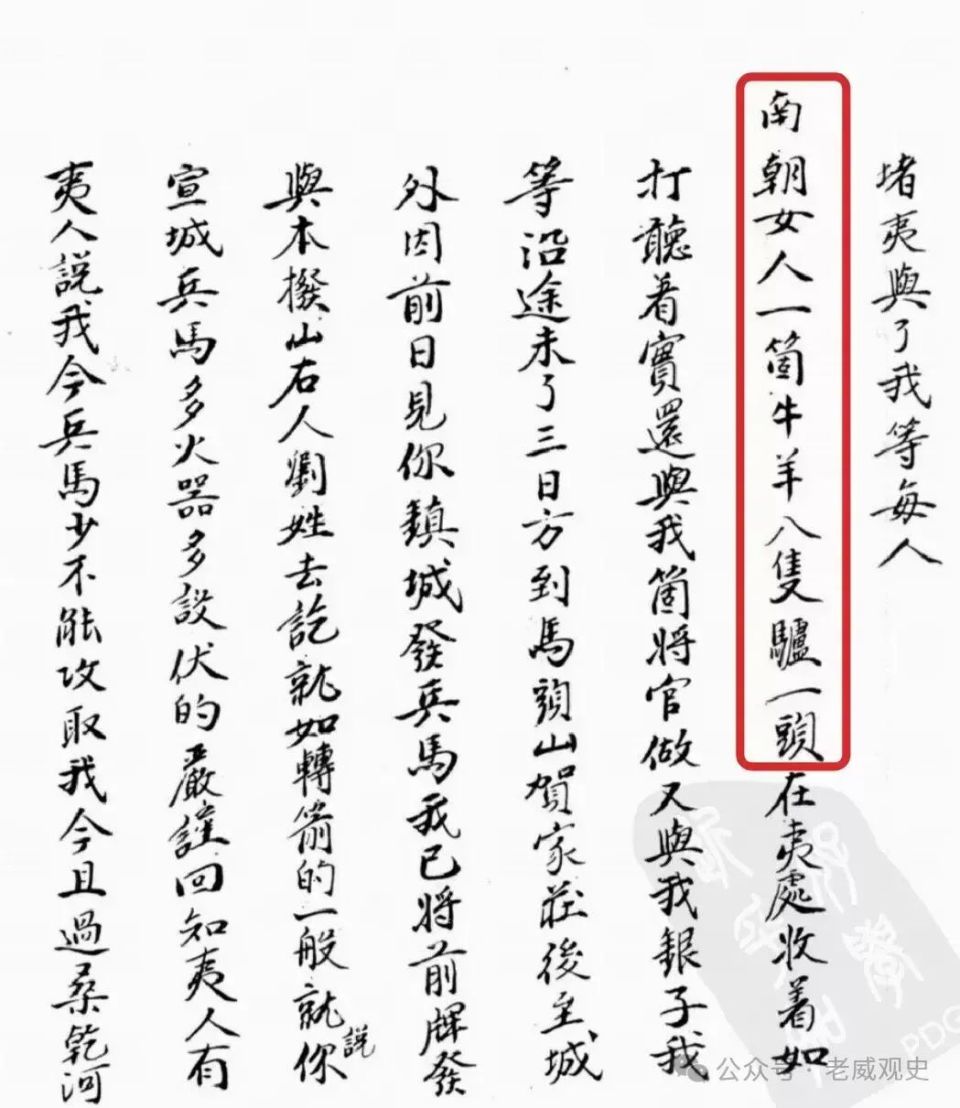 堵夷與了我等每人
南朝女人一箇牛羊八隻驢一頭在夷處收着如
打聽着實還與我箇將官做又與我銀子我
等沿途未了三日方到馬頭山賀家莊後至城
外因前日見你鎮城發兵馬我已將前牌發
與本撥山右人劉姓去訖就如轉箭的一般就你説
宣城兵馬多火器多設伏的嚴謹回知夷人有
夷人説我今兵馬少不能攻取我今且過桑乾河
公众号·老威观史
PDG